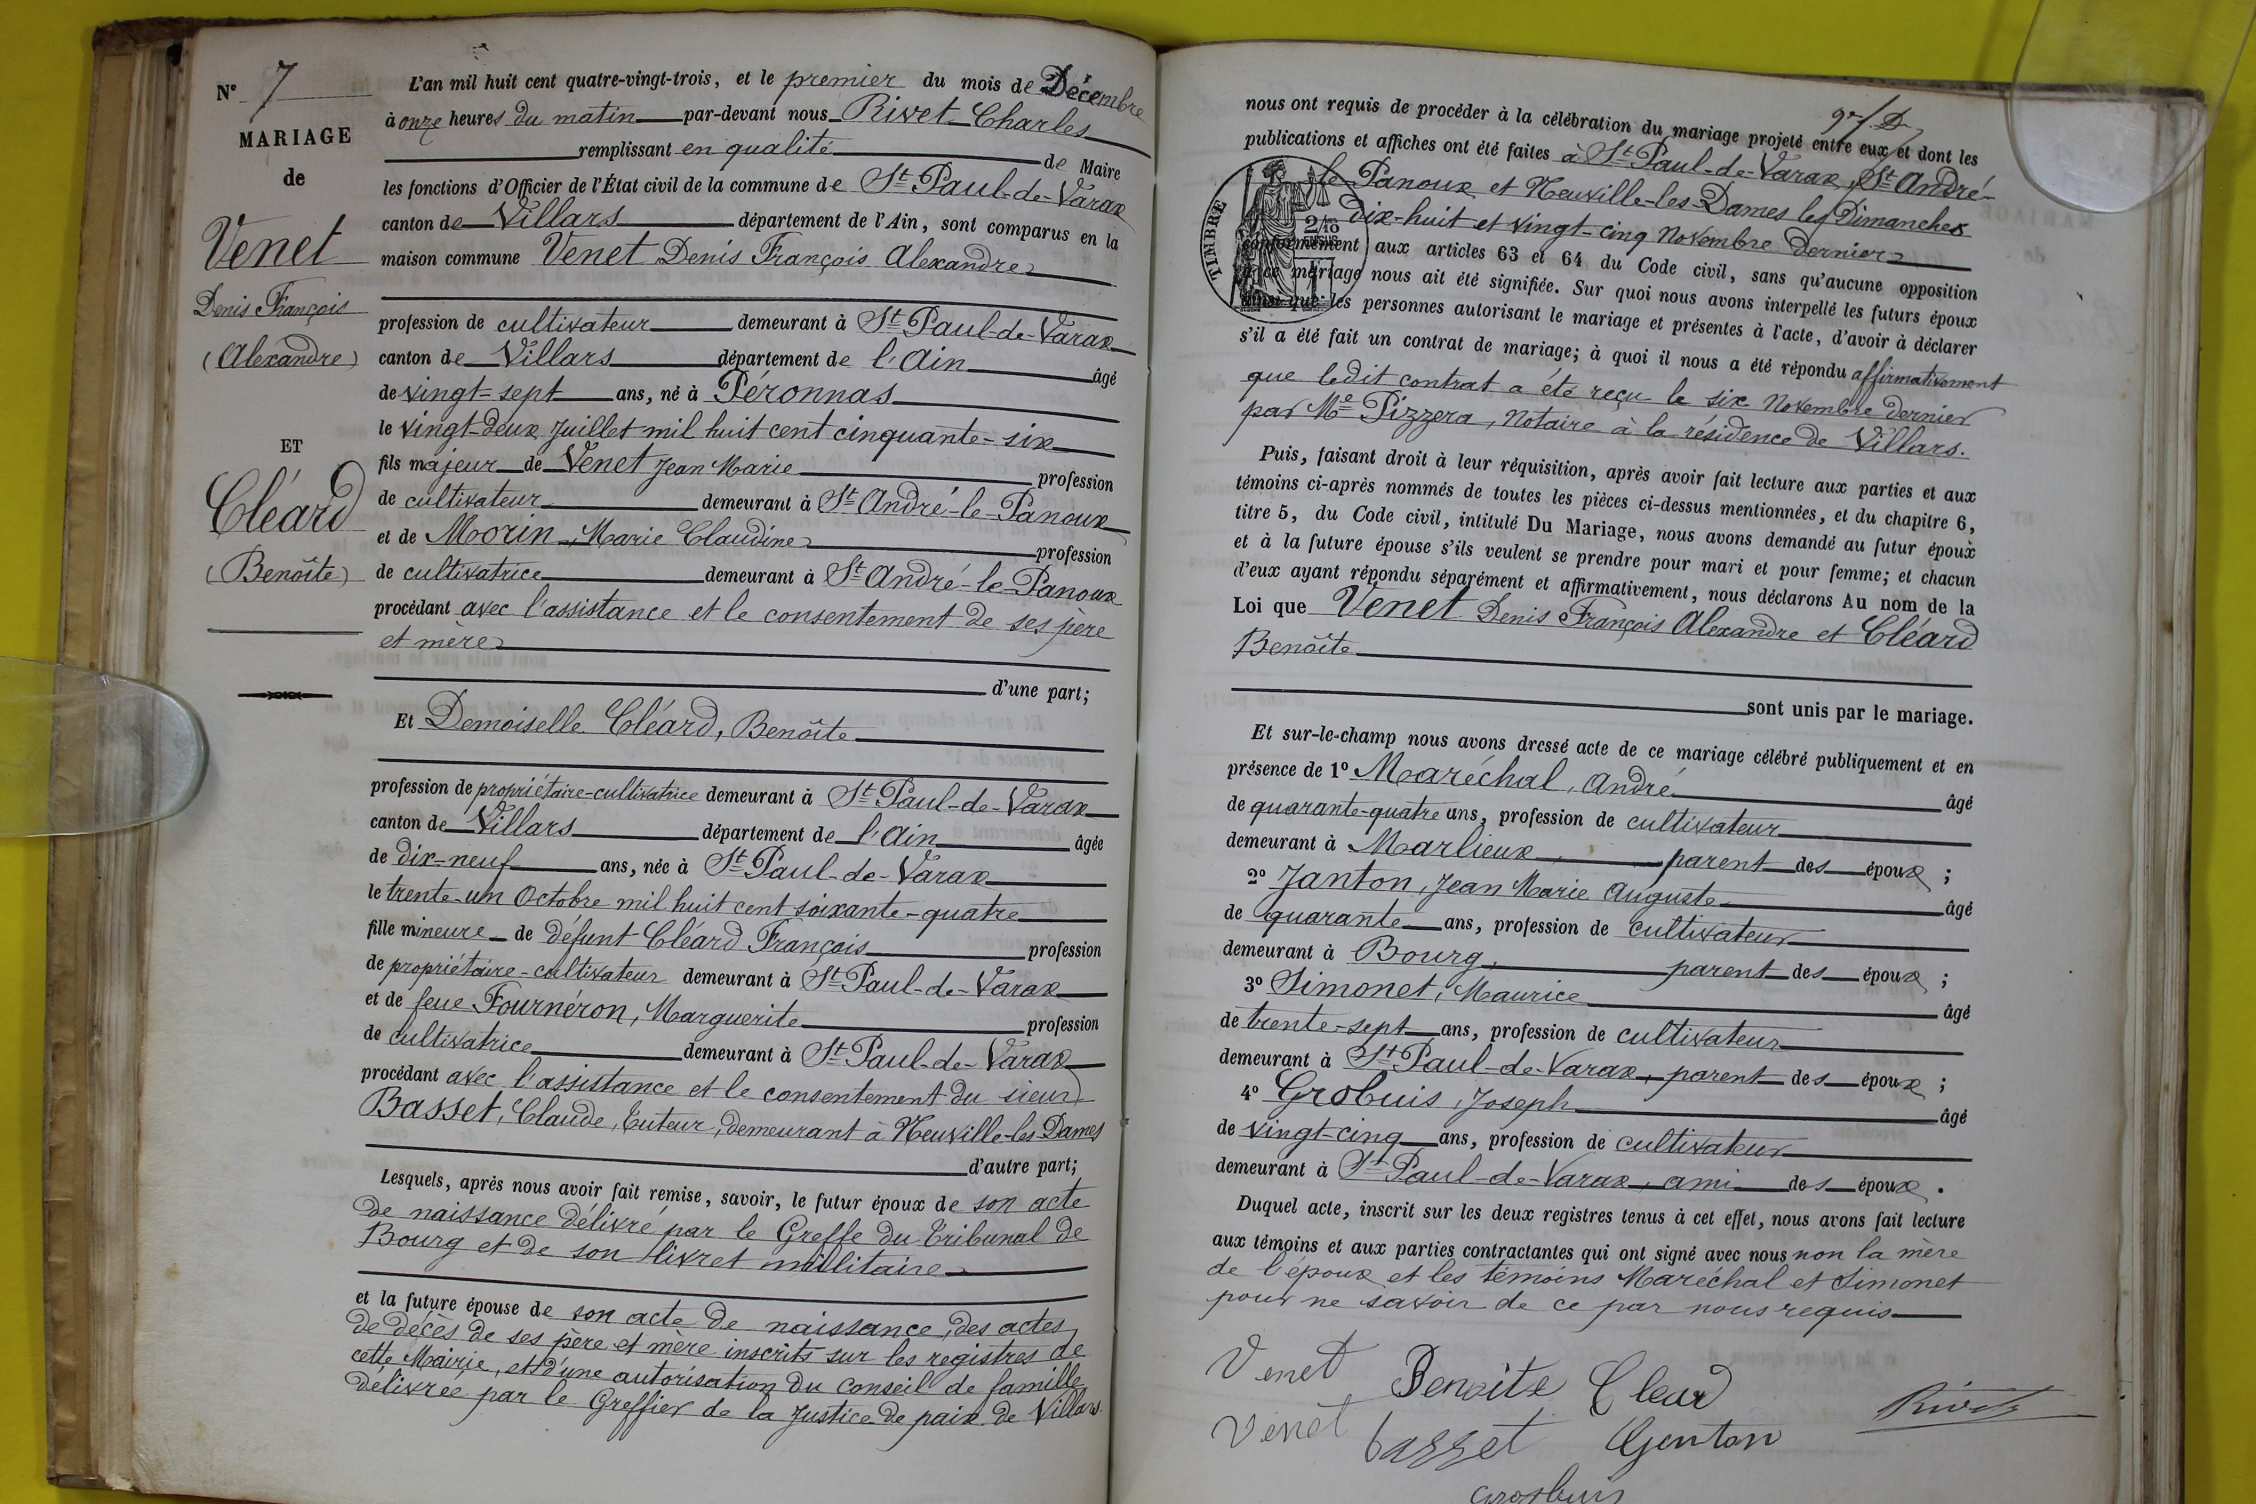 Nº 7
MARIAGE
de
Venet
Denis François
(Alexandre)
ET
Cléard
(Benoîte)
L'an mil huit cent quatre-vingt-trois, et le premier du mois de Décembre
à onze heures du matin par-devant nous Rivet Charles
remplissant en qualité de Maire
les fonctions d'Officier de l'État civil de la commune de St Paul-de-Varax
canton de Villars département de l'Ain, sont comparus en la
maison commune Venet Denis François Alexandre
profession de cultivateur demeurant à St Paul-de-Varax
canton de Villars département de l'Ain âgé
de vingt-sept ans, né à Péronnas
le vingt-deux Juillet mil huit cent cinquante-six
fils majeur de Venet Jean Marie profession
de cultivateur demeurant à St André-le-Panoux
et de Morin, Marie Claudine profession
de cultivatrice demeurant à St André-le-Panoux
procédant avec l'assistance et le consentement de ses père
et mère
d'une part;
Et Demoiselle Cléard, Benoîte
profession de propriétaire-cultivatrice demeurant à St Paul-de-Varax
canton de Villars département de l'Ain âgée
de dix-neuf ans, née à St Paul-de-Varax
le trente-un Octobre mil huit cent soixante-quatre
fille mineure de défunt Cléard François profession
de propriétaire-cultivateur demeurant à St Paul-de-Varax
et de feue Fournéron, Marguerite profession
de cultivatrice demeurant à St Paul-de-Varax
procédant avec l'assistance et le consentement du sieur
Basset, Claude, tuteur, demeurant à Neuville-les-Dames
d'autre part;
Lesquels, après nous avoir fait remise, savoir, le futur époux de son acte
de naissance délivré par le Greffe du Tribunal de
Bourg et de son livret militaire
et la future épouse de son acte de naissance, des actes
de décès de ses père et mère inscrits sur les registres de
cette Mairie, et d'une autorisation du conseil de famille
délivrée par le Greffier de la Justice de paix de Villars
nous ont requis de procéder à la célébration du mariage projeté entre eux et dont les
publications et affiches ont été faites à St Paul-de-Varax, St André-
le-Panoux et Neuville-les-Dames les Dimanches
dix-huit et vingt-cinq Novembre dernier
TIMBRE
conformément aux articles 63 et 64 du Code civil, sans qu'aucune opposition
à ce mariage nous ait été signifiée. Sur quoi nous avons interpellé les futurs époux
ainsi que les personnes autorisant le mariage et présentes à l'acte, d'avoir à déclarer
s'il a été fait un contrat de mariage; à quoi il nous a été répondu affirmativement
que ledit contrat a été reçu le six Novembre dernier
par Me Pizzera, Notaire à la résidence de Villars.
Puis, faisant droit à leur réquisition, après avoir fait lecture aux parties et aux
témoins ci-après nommés de toutes les pièces ci-dessus mentionnées, et du chapitre 6,
titre 5, du Code civil, intitulé Du Mariage, nous avons demandé au futur époux
et à la future épouse s'ils veulent se prendre pour mari et pour femme; et chacun
d'eux ayant répondu séparément et affirmativement, nous déclarons Au nom de la
Loi que Venet Denis François Alexandre et Cléard
Benoîte
sont unis par le mariage.
Et sur-le-champ nous avons dressé acte de ce mariage célébré publiquement et en
présence de 1º Maréchal, André âgé
de quarante-quatre ans, profession de cultivateur
demeurant à Marlieux, parent des époux;
2º Janton, Jean Marie Auguste âgé
de quarante ans, profession de cultivateur
demeurant à Bourg, parent des époux;
3º Simonet, Maurice âgé
de trente-sept ans, profession de cultivateur
demeurant à St Paul-de-Varax, parent des époux;
4º Grobuis, Joseph âgé
de vingt-cinq ans, profession de cultivateur
demeurant à St Paul-de-Varax, ami des époux.
Duquel acte, inscrit sur les deux registres tenus à cet effet, nous avons fait lecture
aux témoins et aux parties contractantes qui ont signé avec nous non la mère
de l'époux et les témoins Maréchal et Simonet
pour ne savoir de ce par nous requis
Venet Benoite Cleard
Rivet
Venet basset Genton
Grosbuis